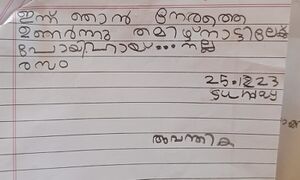 ഇന്ന് ഞാൻ നേരത്തെ
ഉണർന്നു തമിഴ്നാട്ടിലേക്ക്
പോയി ഹായ്... നല്ല
രസം
25.12.23
Sunday
അവന്തിക